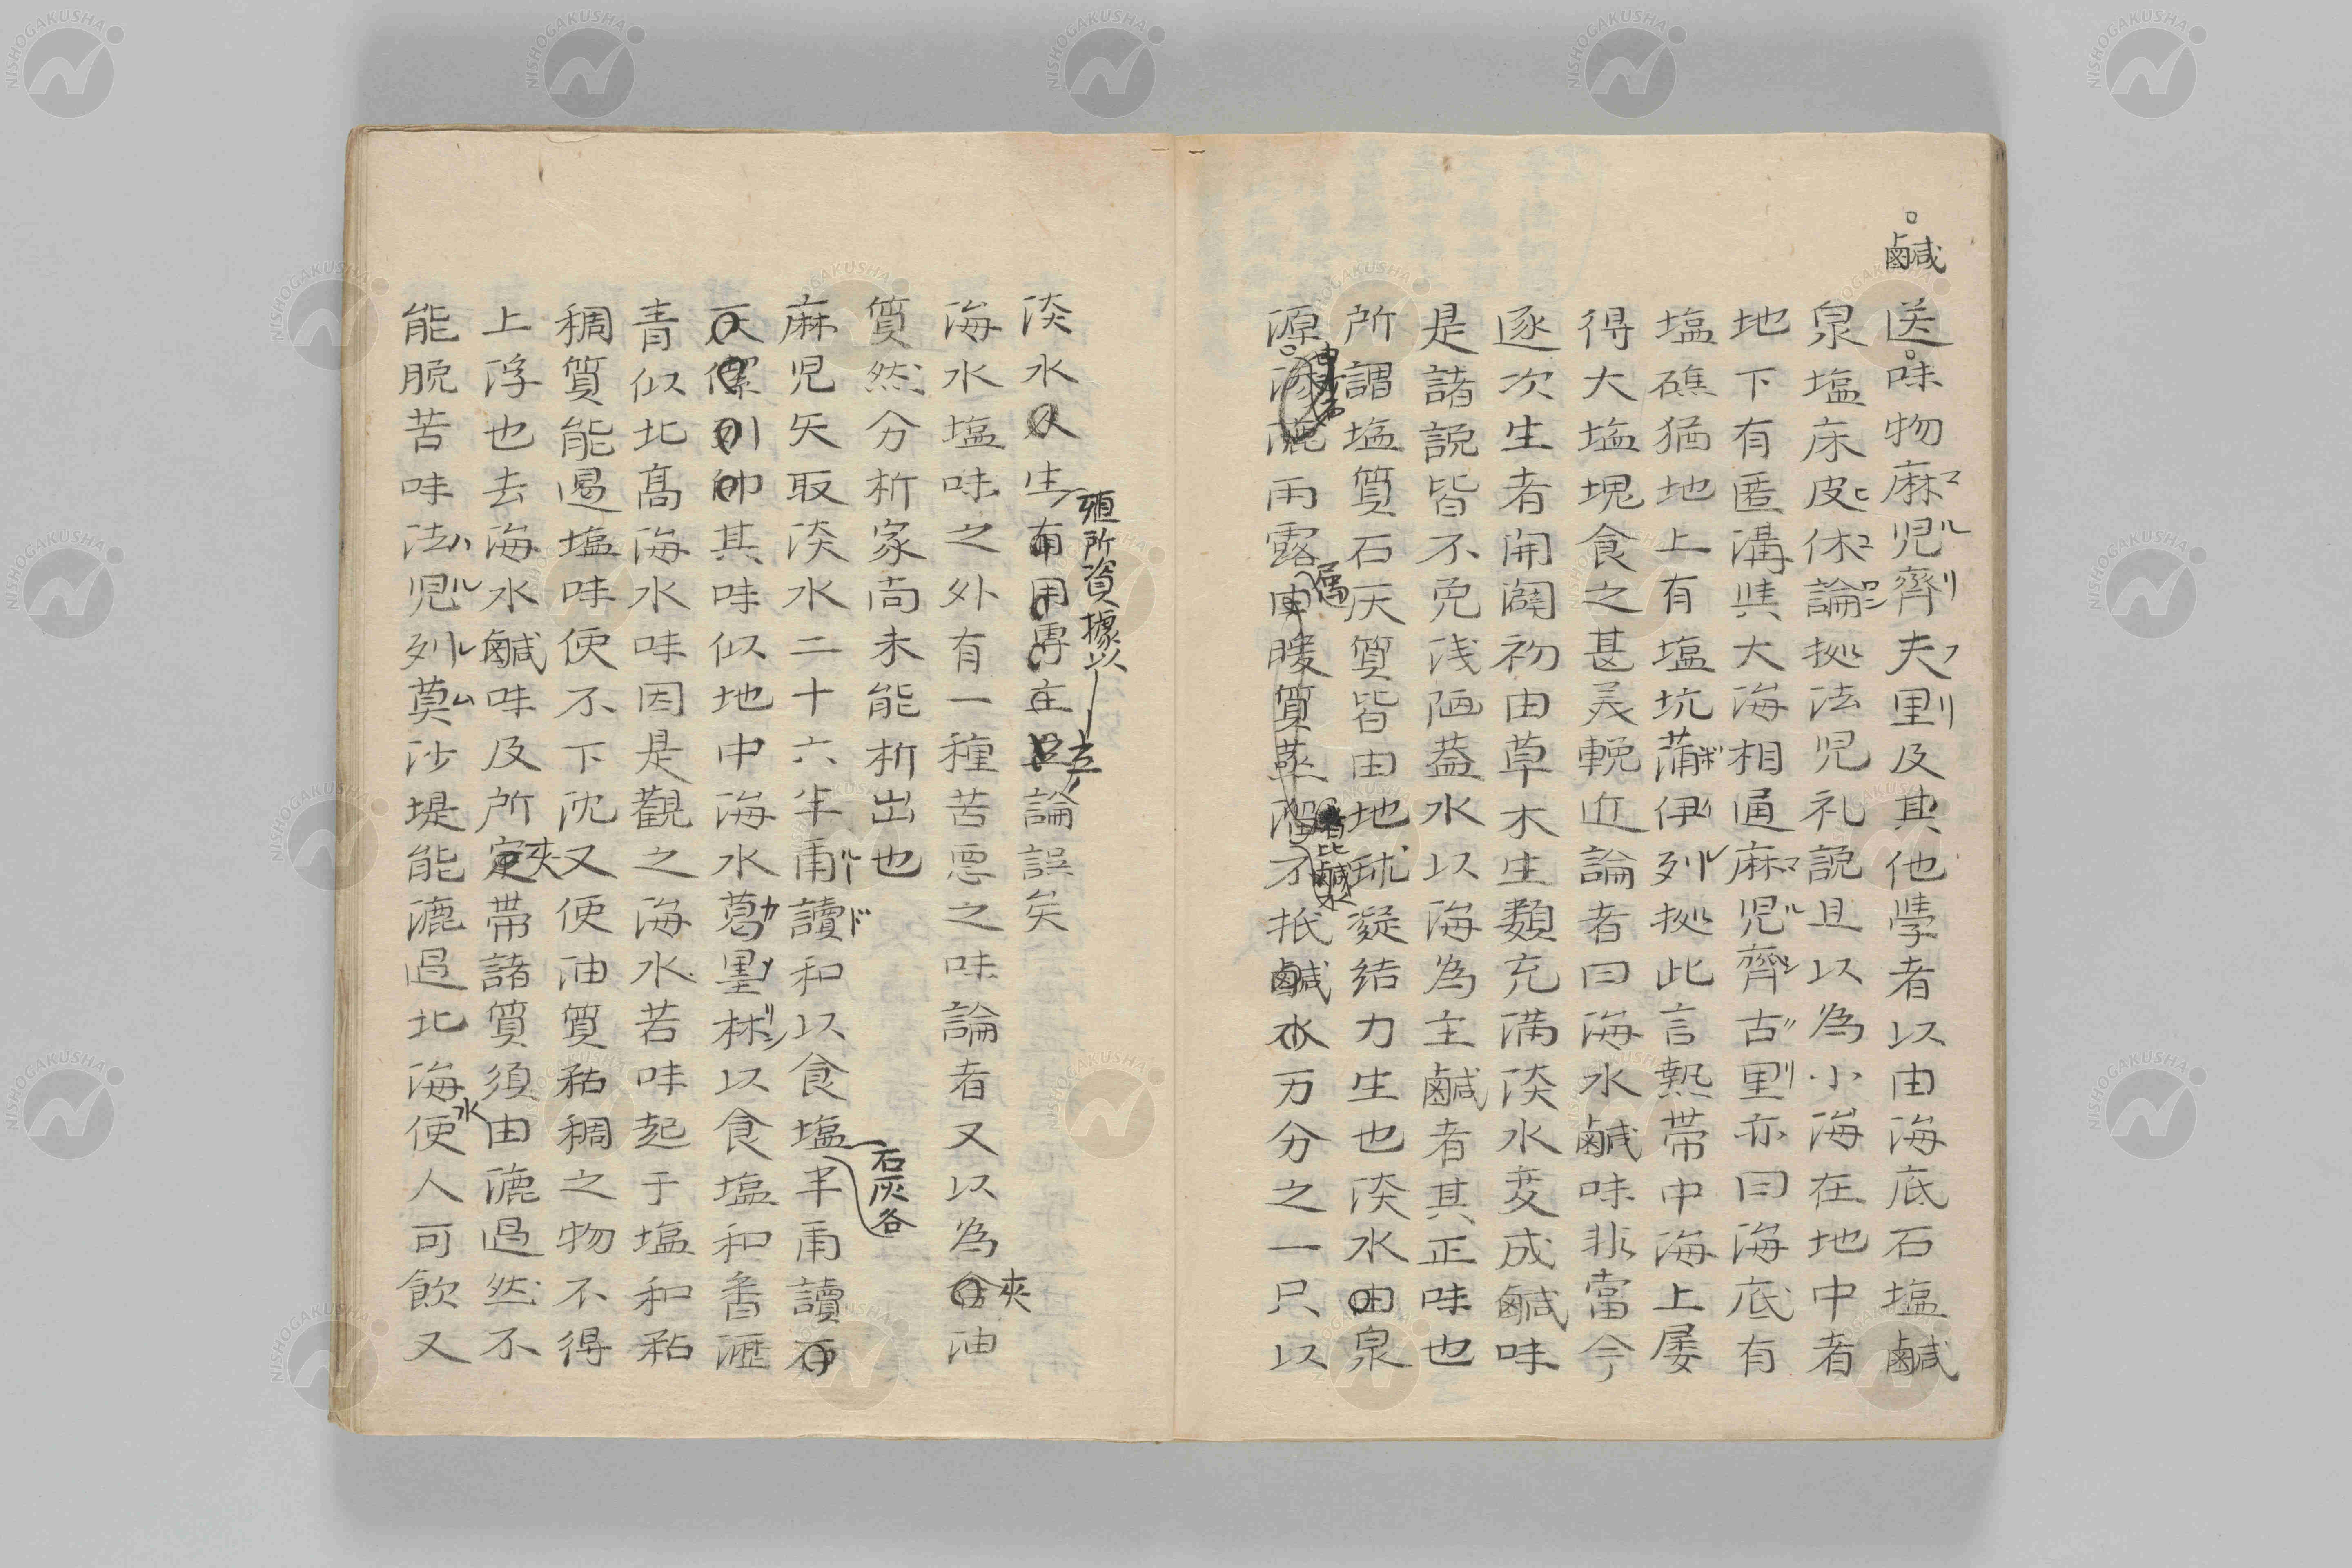 鹹
送味物麻児齊夫里及其他学者以由海底石塩鹹
マルリフリ
泉塩床皮休論拠法児礼説且以為小海在地中者
ヒユロン
地下有匿溝与大海相通麻児齊古里亦曰海底有
マルシグリ
塩礁猶地上有塩坑蒲伊列拠此言熱帯中海上屡
ボイレ
得大塩塊食之甚美輓近論者曰海水鹹味非當今
逐次生者開闢初由草木生類充満淡水変成鹹味
是諸説皆不免浅陋蓋水以海為主鹹者其正味也
所謂塩質石灰質皆由地球凝結力生也淡水由泉
源 雨露 暖質蒸 不抵鹹水万分之一只以
属
比鹹水
淡水 生 論誤矣
殖所資據以
立
海水塩味之外有一種苦悪之味論者又以為含油
夾
質然分析家尚未能析出也
麻児矢取淡水二十六半甫讀和以食塩半甫讀
ルド
石灰各
其味似地中海水葛墨林以食塩和香瀝
カメリン
青似北髙海水味因是觀之海水苦味起于塩和粘
稠質能過塩味便不下沈又便油質粘稠之物不得
上浮也去海水鹹味及所 帯諸質須由漉過然不
夾
能脱苦味法児列莫沙堤能漉過北海便人可飲又
ハルレム
水